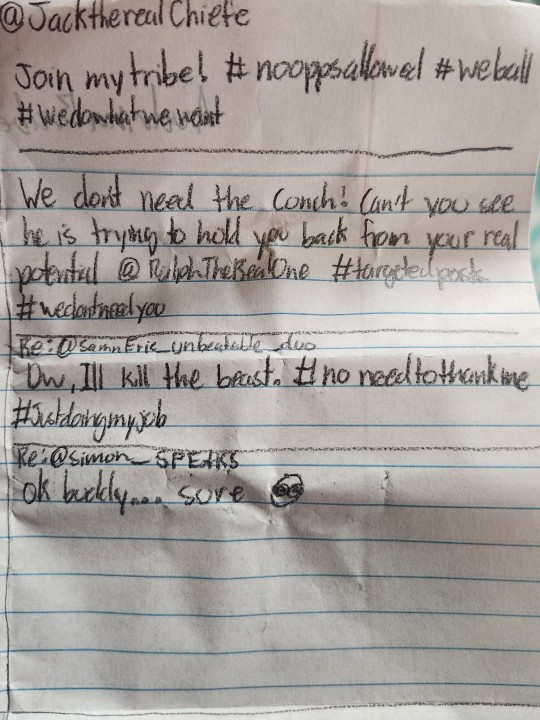 @JacktherealChiefe
Join my tribe! #nooppsallowed #weball
#wedowhatwewant
We don't need the Conch! Can't you see
he is trying to hold you back from your real
potential @RalphTheRealOne #targetedposts
#wedontneedyou
Re:@SamnEric_unbeatable_duo
Dw, I'll kill the beast. #no needtothankme
#Justdoingmyjob
Re:@Simon_SPEAKS
Ok buddy... sure